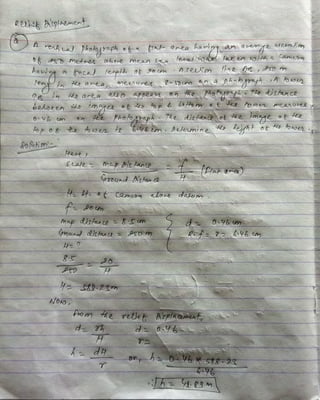 Relief Displacement
Q. A vertical Photograph of a flat area having an average elevation
of 250 metres above mean sea level was taken with a camera
having a focal length of 20cm. A section line AB, 250 m
long in the area, measures 8.50cm on a photograph. A tower
in the area also appears on the photograph. The distance
between the images of the top & bottom of the tower measures
0.46 cm on the photograph. The distance of the image of the
top of the tower is 6.46cm. Determine the height of the tower.
Solution:-
Here,
Scale = map Distance / Ground Distance = f / H (flat area)
H = Ht. of camera above datum.
f = 20cm
map distance = 8.5cm
Ground distance = 250m
d = 0.46cm
r = 6.46cm
H = ?
8.5 / 250 = 20 / H
H = 588.23m
Now,
from the relief displacement,
d = rh / H d = 0.46
r =
h = dH / r or, h = 0.46 * 588.23 / 6.46
∴ h = 41.89m